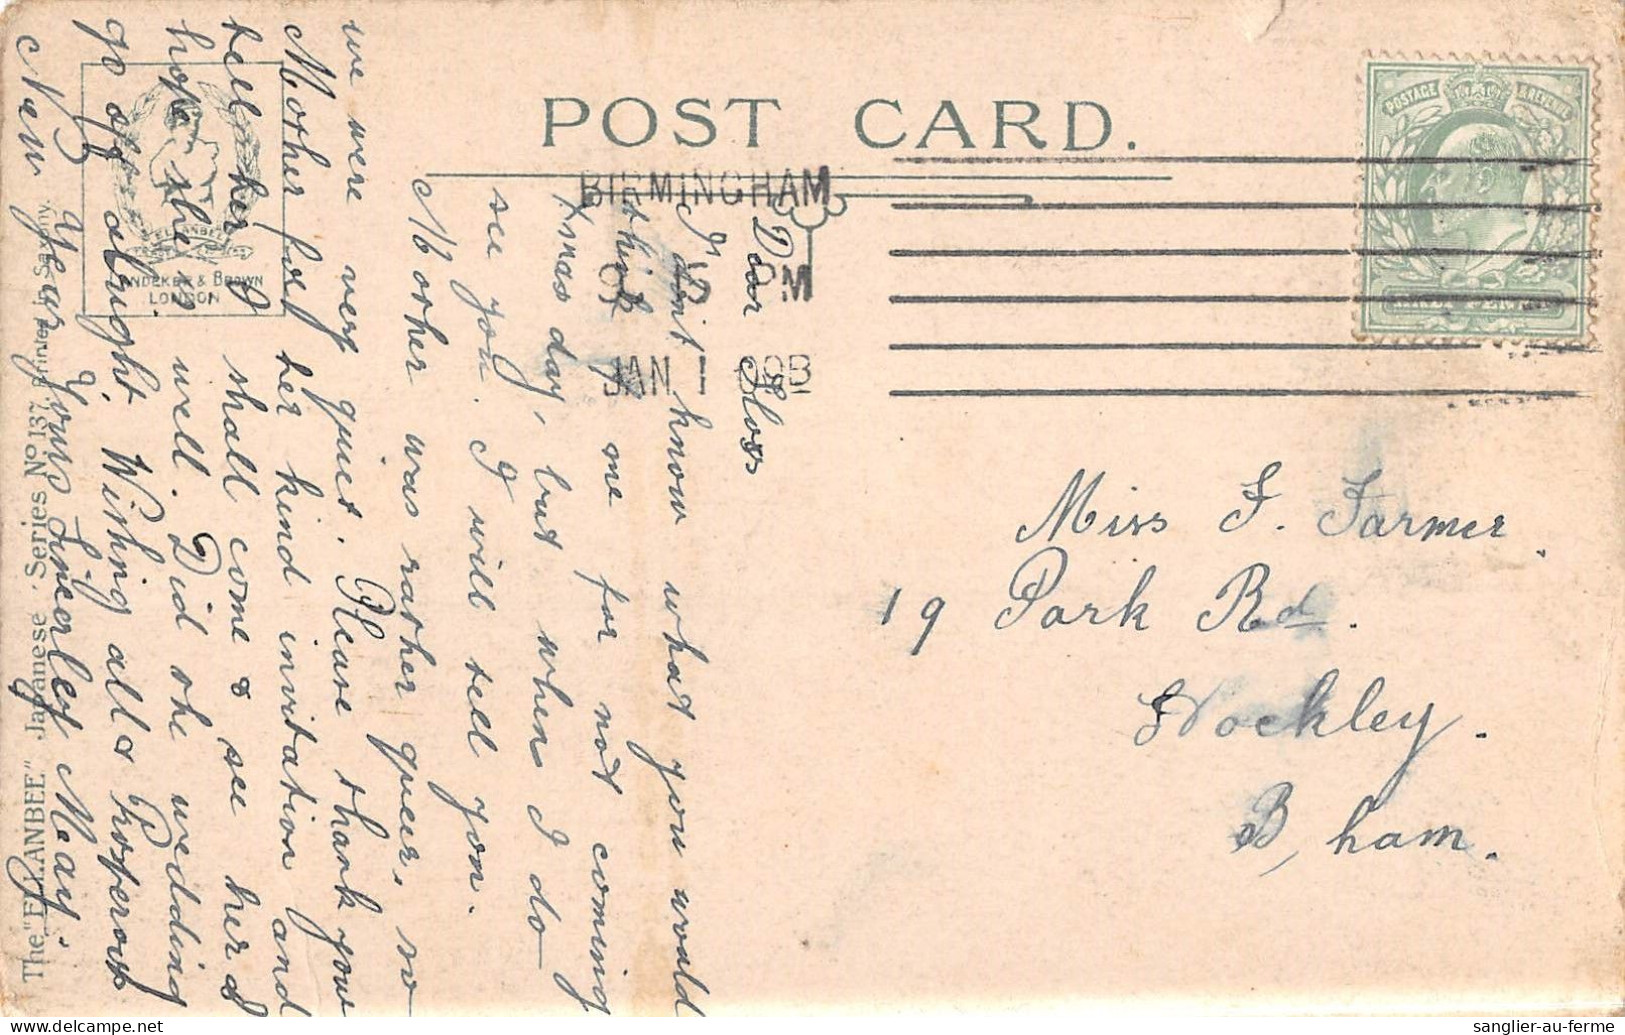 POST CARD.
BIRMINGHAM
PM
JAN 1
POSTAGE & REVENUE
Miss F. Farmer.
19 Park Rd.
Hockley.
B,ham.
Dear Floss
I dont know what you would
think of me for not coming
Xmas day, but when I do
see you I will tell you.
Mother was rather queer, so
we were very quiet. Please thank your
Mother for her kind invitation and
tell her I shall come & see her &
hope she is well. Did the wedding
go off alright. Wishing all a Prosperous
New Year Yours Sincerley May.
ELLANBEE
& BROWN
LONDON
The "ELLANBEE" Japanese. Series No 137. Printed in Saxony.
sanglier-au-ferme